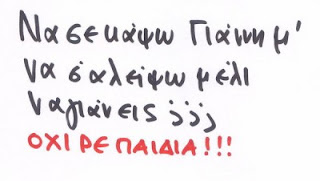 Να σε κάψω Γιάννη μ'
να σ'αλείψω μέλι
να γιάνεις ;;;
ΟΧΙ ΡΕ ΠΑΙΔΙΑ!!!